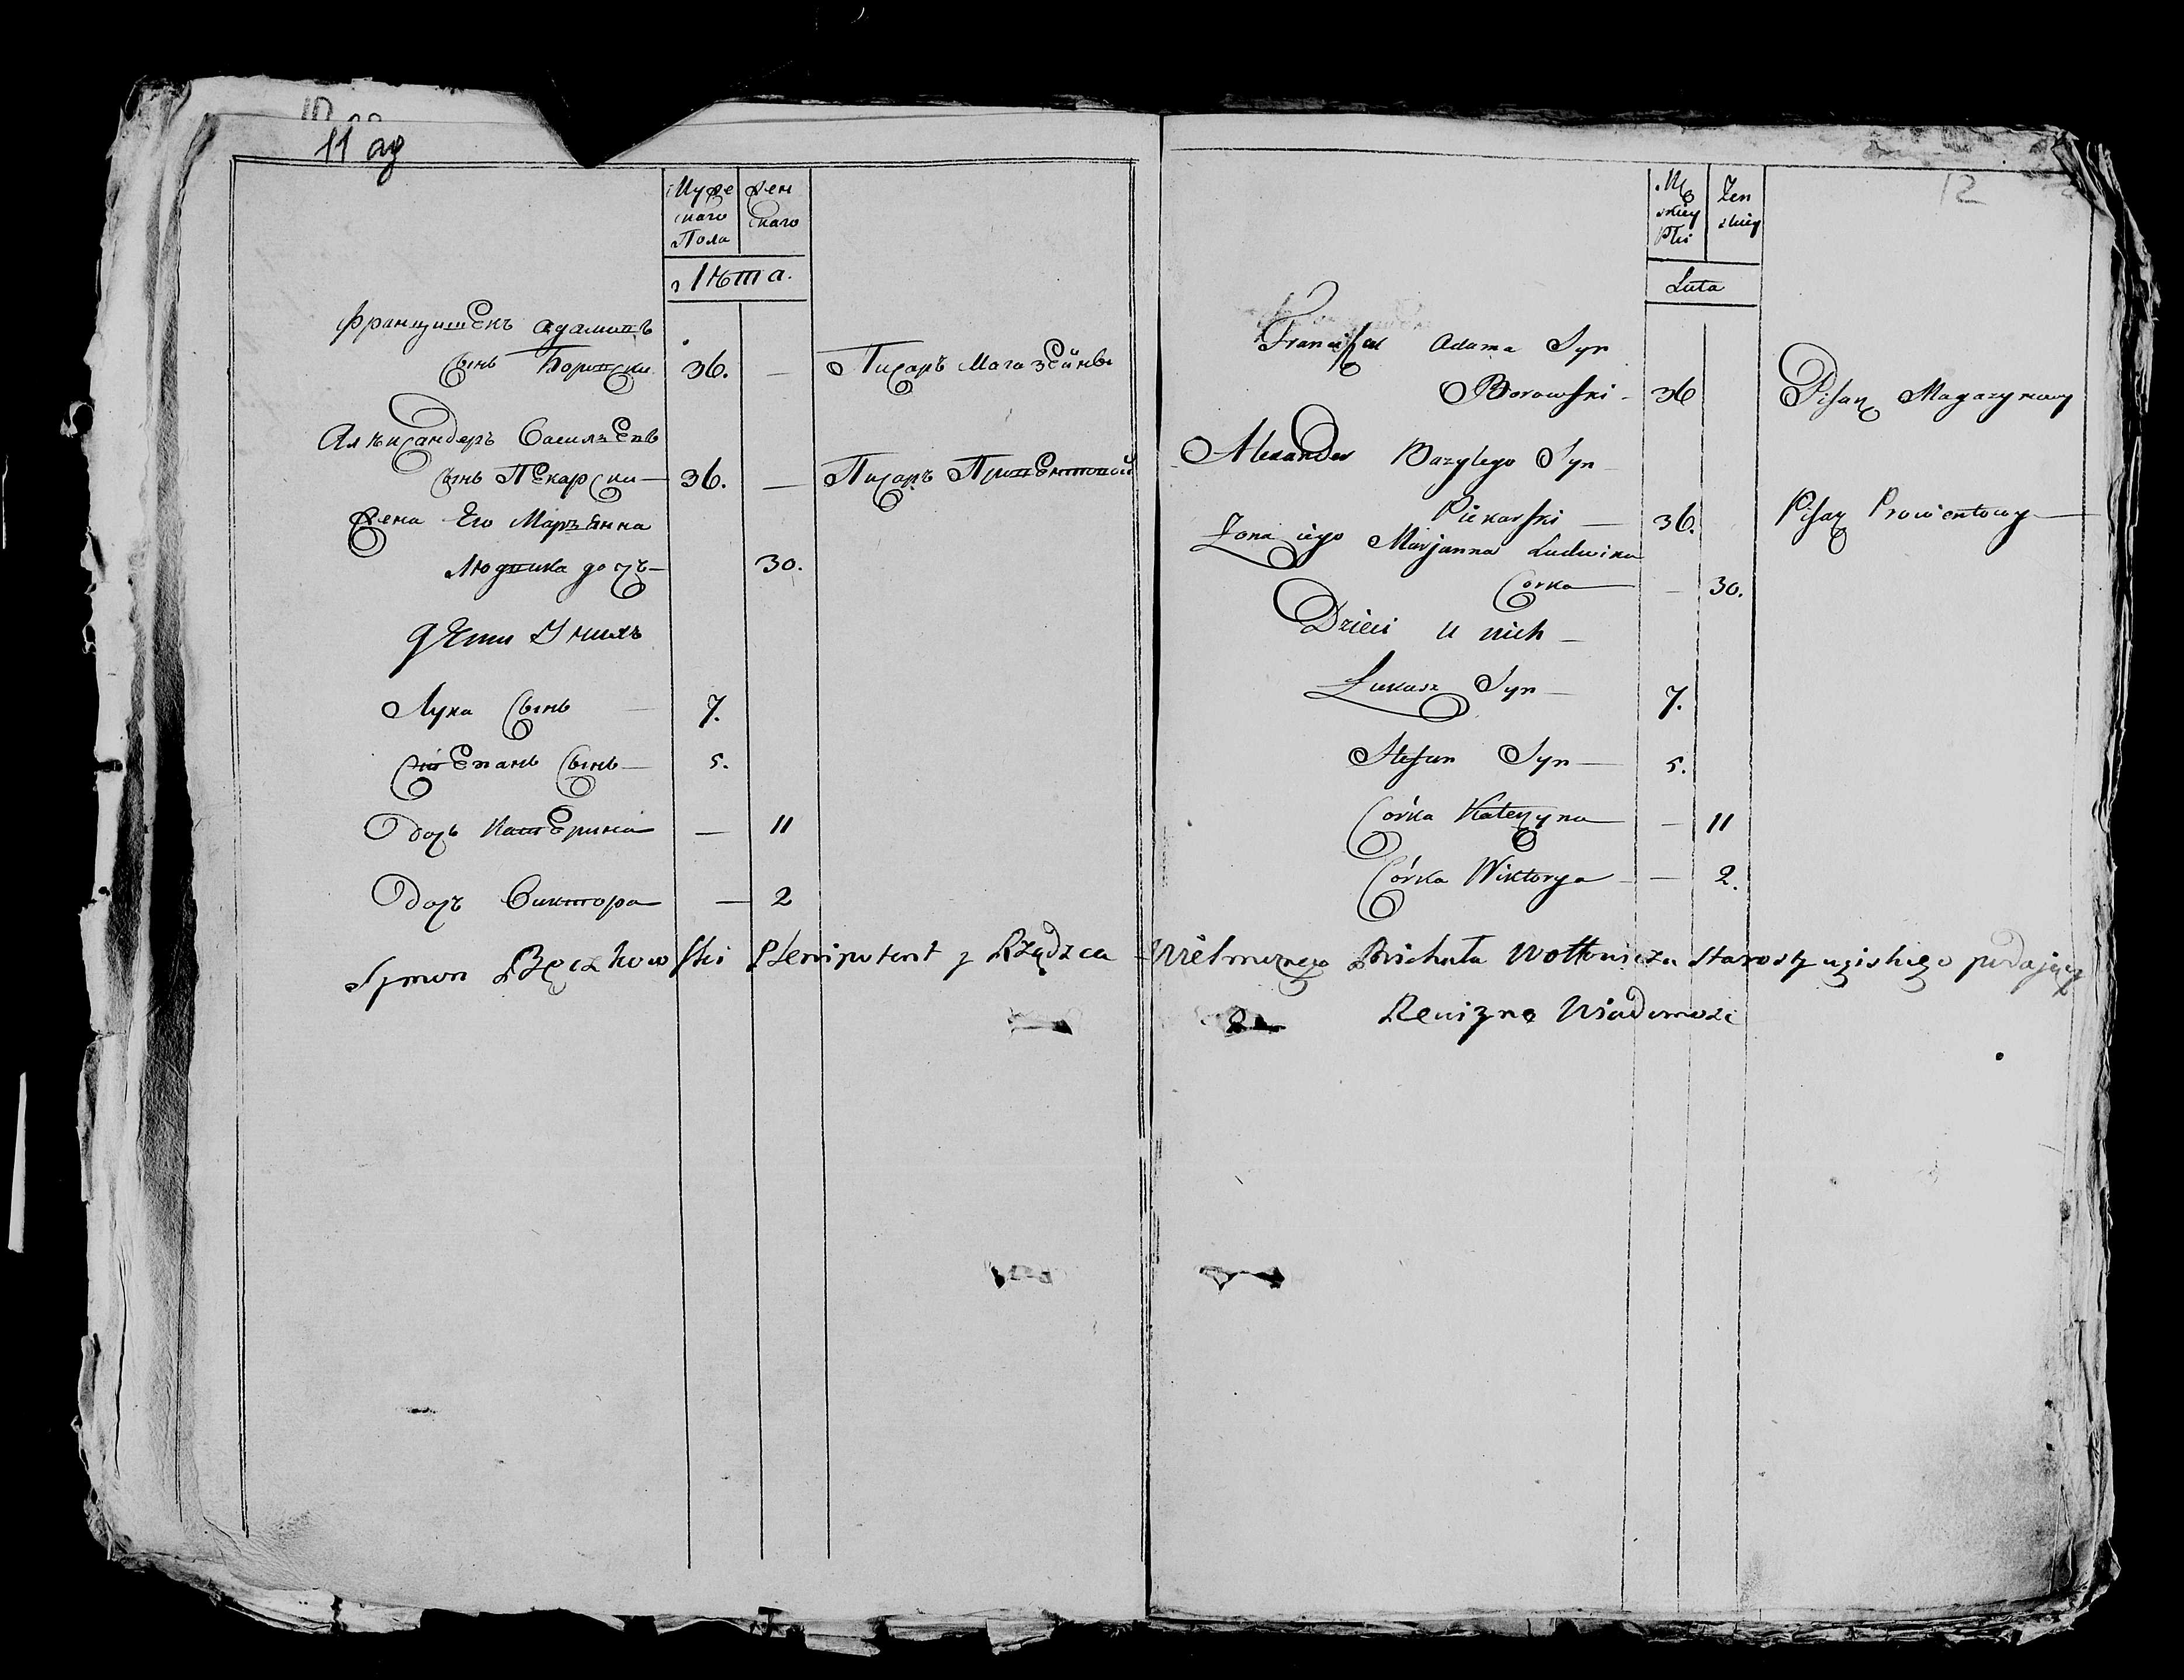 11 об
Муже
скаго
Пола
Жен
скаго
Лѣта.
Францишекъ Адамовъ
Сынъ Боровски 36. — Писаръ Магазейнвы
Алѣксандеръ Василъевъ
Сынъ Пекарски — 36. — Писаръ Провентовой
Жена Его Маръянна
Людвика дочъ — 30.
Дети У нихъ
Лука Сынъ — 7.
Степанъ Сынъ — 5.
Дочъ Катерина — 11
Дочъ Виктора — 2
12
Mę
skiey
Płci
Żen
skiey
Luta
Adama Syn
Borowski - 36 Pisarz Magazynowy
Alexander Bazylego Syn
Piekarski — 36. Pisarz Prowentowy —
Zona iego Marjanna Ludwika
Corka — 30.
Dzieci u nich —
Łukasz Syn — 7.
Stefan Syn — 5.
Córka Katerzyna — 11
Córka Wiktorya — 2.
Symon Plenipotent y Rządzca Wielmoznego Michała Wołłowicza podający
Rewizną Wiadomość